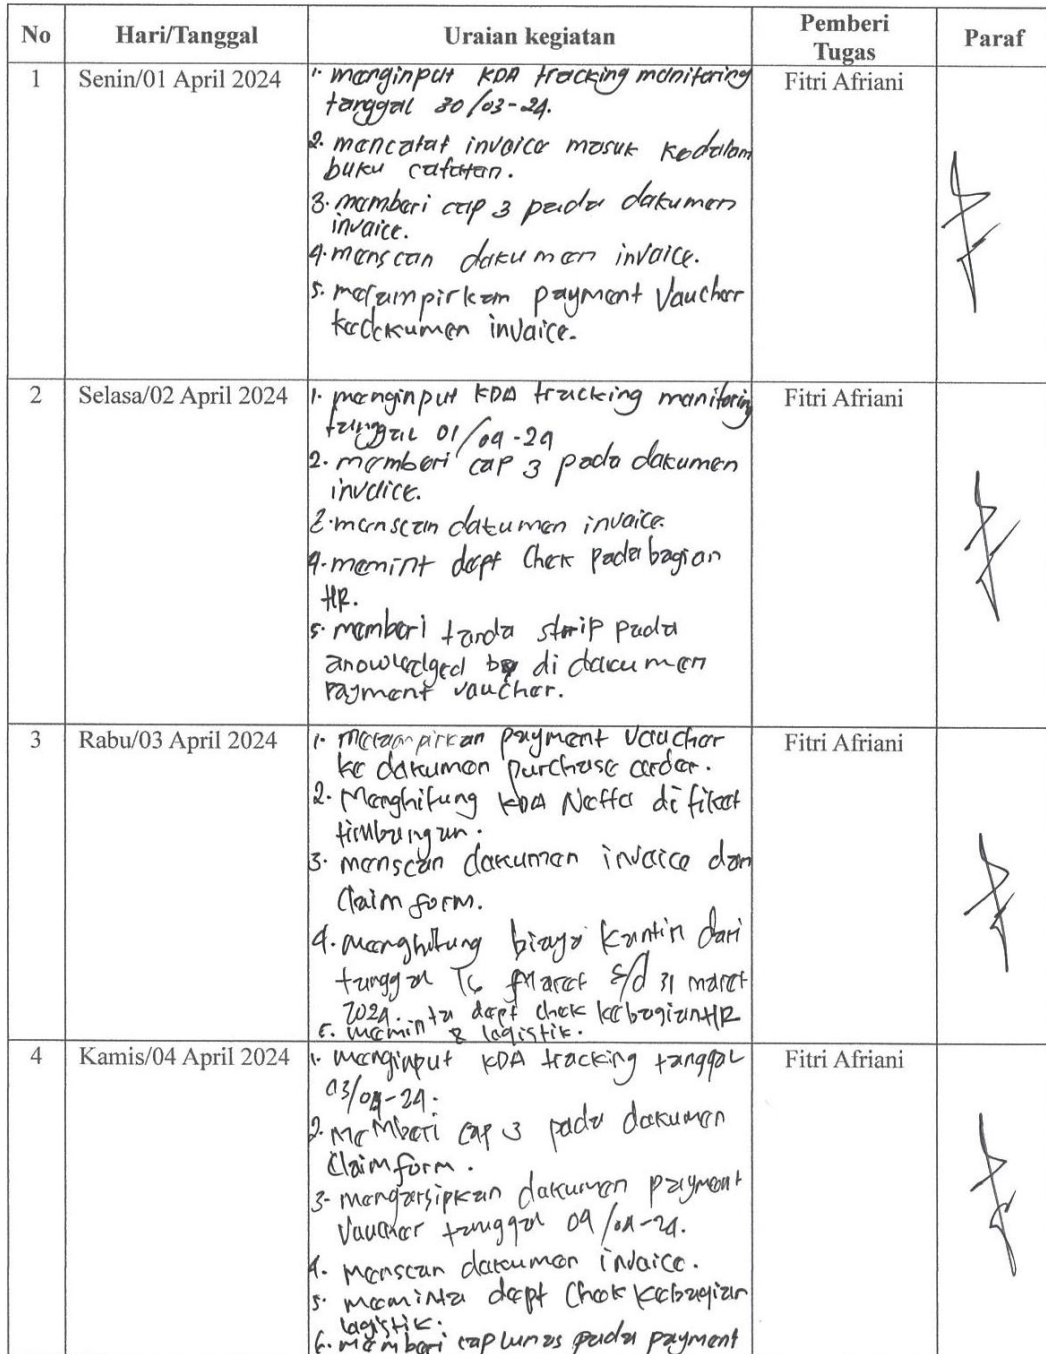 No Hari/Tanggal Uraian kegiatan Pemberi Tugas Paraf
1 Senin/01 April 2024 Fitri Afriani
1. menginput KDA tracking monitoring
tanggal 30/03-24.
2. mencatat invoice masuk kedalam
buku catatan.
3. memberi cap 3 pada dokumen
invoice.
4. menscan dokumen invoice.
5. melampirkan payment Voucher
kedokumen invoice.
2 Selasa/02 April 2024 Fitri Afriani
1. menginput KDA tracking monitoring
tanggal 01/04-24
2. memberi cap 3 pada dokumen
invoice.
3. menscan dokumen invoice.
4. memint dept Chek pada bagian
HR.
5. memberi tanda strip pada
anowledged by di dokumen
Payment voucher.
3 Rabu/03 April 2024 Fitri Afriani
1. melampirkan payment Voucher
ke dokumen purchase order.
2. Menghitung KDA Netto di tiket
timbangan.
3. menscan dokumen invoice dan
Claim form.
4. menghitung biaya kantin dari
tanggal 16 Maret s/d 31 maret
2024.
5. meminta dept chek kebagian HR
& logistik.
4 Kamis/04 April 2024 Fitri Afriani
1. menginput KDA tracking tanggal
03/04-24.
2. Memberi cap 3 pada dokumen
Claim form.
3. mengarsipkan dokumen payment
Voucher tanggal 04/04-24.
4. menscan dokumen invoice.
5. meminta dept Chek kebagian
logistik.
6. memberi cap lunas pada payment